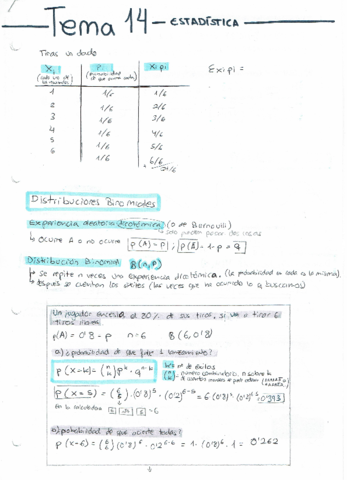 Tema 14 - ESTADÍSTICA
Tiras un dado
Xi Pi Xi·pi Σxi·pi =
1 1/6 1/6
2 1/6 2/6
3 1/6 3/6
4 1/6 4/6
5 1/6 5/6
6 1/6 6/6
21/6
Distribuciones Binomiales
Experiencia aleatoria dicotómica (o de Bernoulli)
solo pueden pasar dos cosas
↳ Ocurre A o no ocurre P(A) = p ; = 1 - p = q
Distribución Binomial B(n,p)
se repite n veces una experiencia dicotómica. (la probabilidad en cada es la misma)
después se cuentan los éxitos (las veces que ha ocurrido lo q buscamos)
Un jugador encesta el 80% de sus tiros, si va a tirar 6
tiros libres
p(A) = 0'8 = p n=6 B(6, 0'8)
a) ¿probabilidad de que falle 1 lanzamiento?
P(x=k) = (n k) p^k · q^n-k
k = nº de éxitos
número combinatorio, n sobre k
P(x=5) = (6 5) · (0'8)^5 · (0'2)^6-5 = 6 · (0'8)^5 · (0'2)^1 = 0'393
En la calculadora = 6
b) probabilidad de que acierte todas?
P(x=6) = (6 6) (0'8)^6 · 0'2^6-6 = 1 · (0'8)^6 · 1 = 0'262